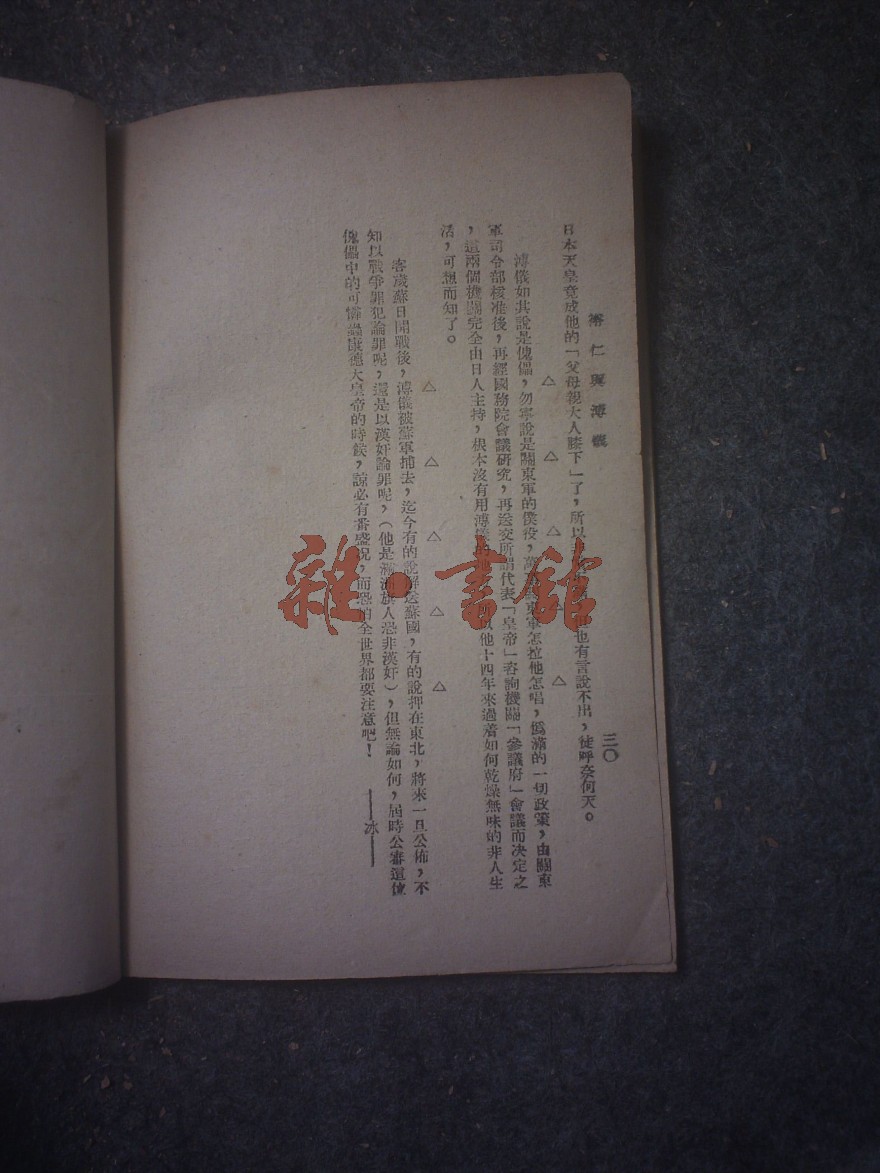 裕仁與溥儀
三〇
日本天皇竟成他的「父母親大人膝下」了，所以 也有言說不出，徒呼奈何天。
△ △ △ △ △
溥儀如其說是傀儡，勿寧說是關東軍的僕役， 東軍怎拉他怎唱，僞滿的一切政策，由關東
軍司令部核准後，再經國務院會議研究，再送交所謂代表「皇帝」咨詢機關「參議府」會議而決定之
，這兩個機關完全由日人主持，根本沒有用溥儀的地 他十四年來過着如何乾燥無味的非人生
活，可想而知了。
△ △ △ △ △
客歲蘇日開戰後，溥儀被蘇軍捕去，迄今有的說解送蘇國，有的說押在東北，將來一旦公佈，不
知以戰爭罪犯論罪呢，還是以漢奸論罪呢，（他是滿洲旗人恐非漢奸），但無論如何，屆時公審這位
傀儡中的可憐蟲康德大皇帝的時候，諒必有番盛況，而恐怕全世界都要注意吧！ ——冰——
雜·書館